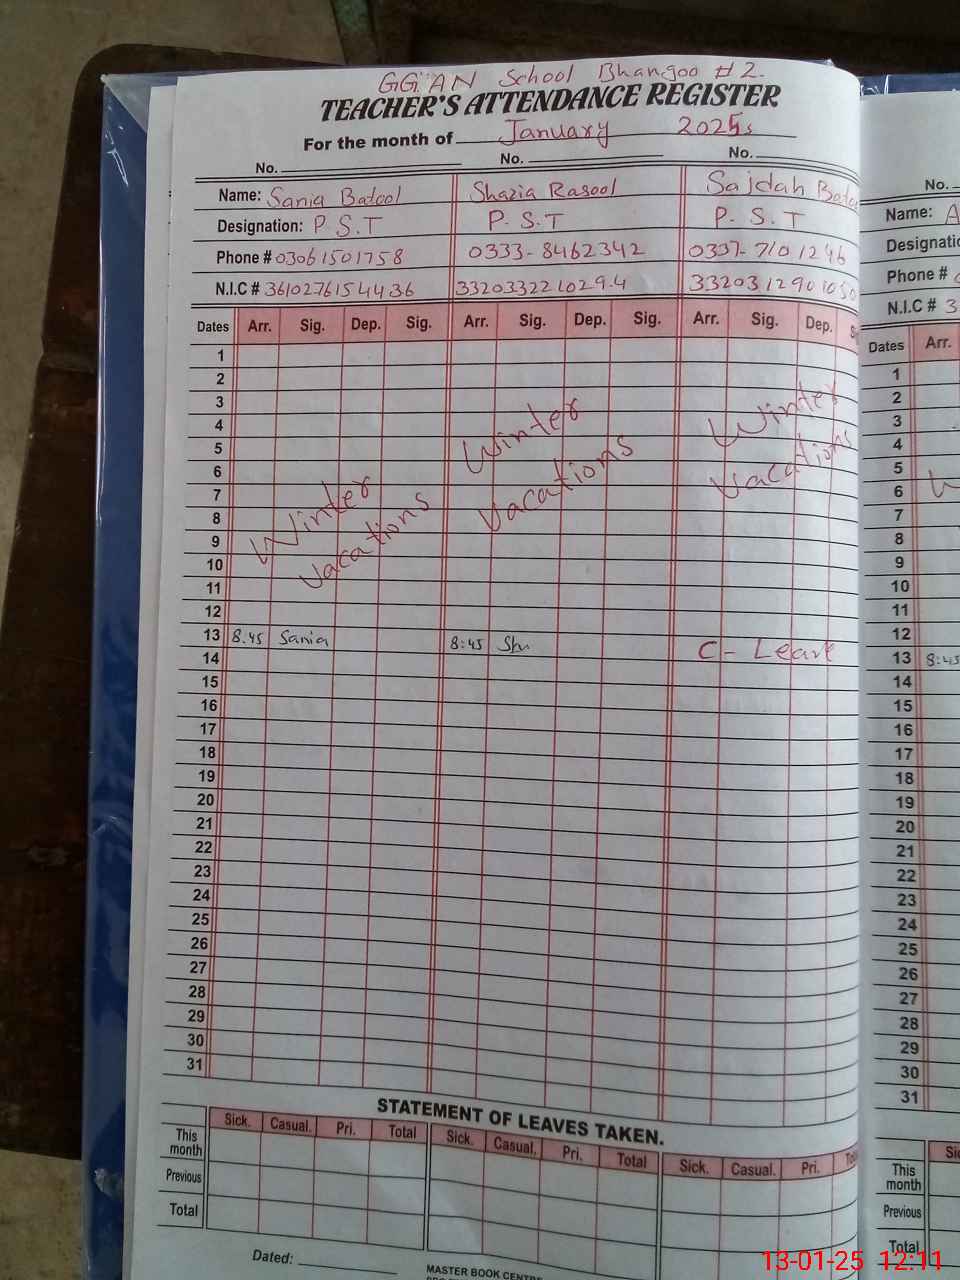 GG.AN School Bhangoo # 2.
TEACHER'S ATTENDANCE REGISTER
For the month of January 2025
No. No. No.
Name: Sania Batool Shazia Rasool Sajdah
Designation: P.S.T P.S.T P.S.T
Phone # 03061501758 0333-8462342 0337-7101246
N.I.C # 3610276154436 332033221029.4
Dates Arr. Sig. Dep. Sig. Arr. Sig. Dep. Sig. Arr. Sig. Dep.
1
2
3
4
5
6
7
8
9
10
11
12
Winter Vacations Winter Vacations Winter Vacations
13 8.45 Sania 8:45 C-Leave
14
15
16
17
18
19
20
21
22
23
24
25
26
27
28
29
30
31
STATEMENT OF LEAVES TAKEN.
Sick. Casual. Pri. Total Sick. Casual. Pri. Total Sick. Casual. Pri.
This month
Previous
Total
Dated:
MASTER BOOK CENTRE
No.
Name: A
Phone #
N.I.C # 3
Dates Arr.
1
2
3
4
5
6
7
8
9
10
11
12
13 8:45
14
15
16
17
18
19
20
21
22
23
24
25
26
27
28
29
30
31
This month
Previous
Total
13-01-25 12:11